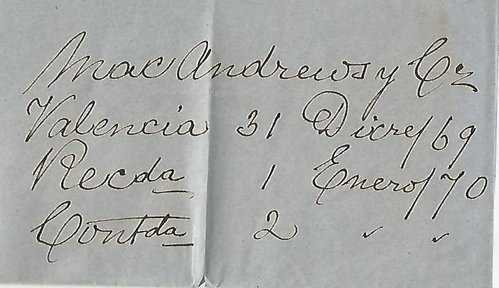 Mac Andrews y Ca
Valencia 31 Dicre/69
Recda 1 Enero/70
Contda 2 " "